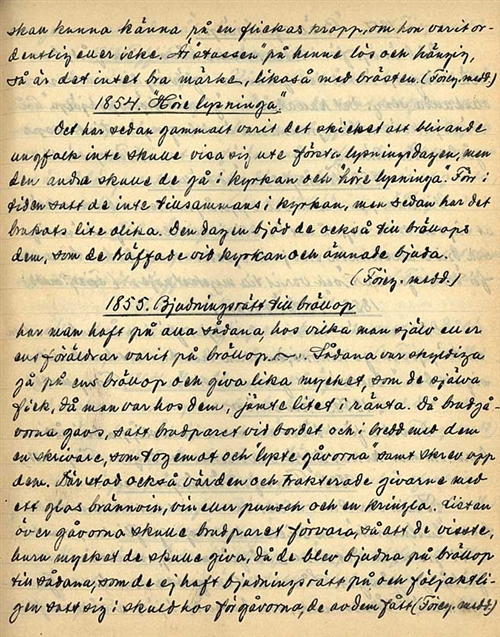 skall kunna känna på en flickas kropp, om hon varit or-
dentlig eller icke. Är "stassen" på henne lös och hängig,
så är det intet bra märke, likaså med brösten. (Föreg. medd.)
1854. "Höre lysninga"
Det har sedan gammalt varit det skicket att blivande
ungfolk inte skulle visa sig ute första lysningsdagen, men
den andra skulle de gå i kyrkan och "höre lysninga. Förr i
tiden satt de inte tillsammans i kyrkan, men sedan har det
brukats lite olika. Den dagen bjöd de också till bröllops
dem, som de träffade vid kyrkan och ämnade bjuda.
(Föreg. medd.)
1855. Bjudningsrätt till bröllop
har man haft på alla sådana, hos vilka man själv eller
ens föräldrar varit på bröllop. Sådana var skyldiga
gå på ens bröllop och giva lika mycket, som de själva
fick, då man var hos dem, jämte litet i ränta. Då brudgå-
vorna gavs, satt brudparet vid bordet och i bredd med dem
en skrivare, som tog emot och "lyste gåvorna" samt skrev upp
dem. Där stod också värden och trakterade givarne med
ett glas brännvin, vin eller punsch och en kringla. Listan
över gåvorna skulle brudparet förvara, så att de visste,
huru mycket de skulle giva, då de blev bjudna på bröllop
till sådana, som de ej haft bjudningsrätt på och följaktli-
gen satt sig i skuld hos för gåvorna, de av dem fått (Föreg. medd.)